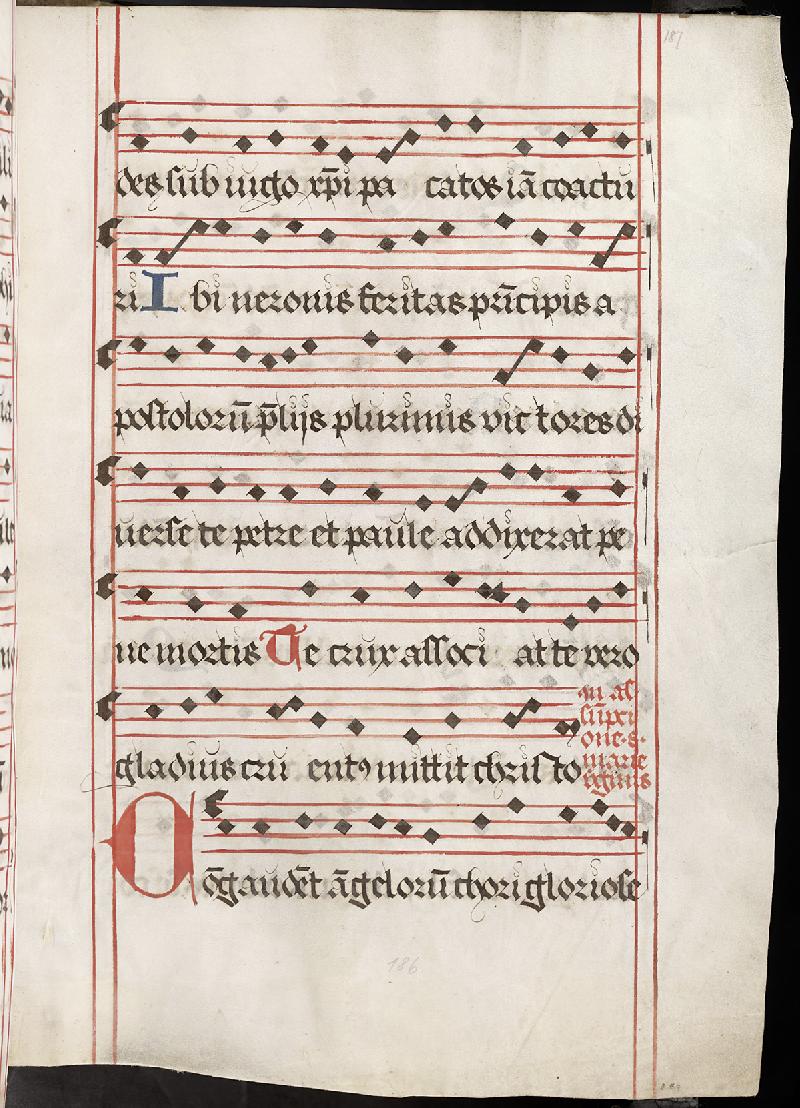 187
des sub iugo xp̄i pa catos iā coactu
ri I bi neronis feritas prīcipis a
postolorū p̄lijs plurimis victores di
uerse te petre et paule addixerat pe
ne mortis Te crux associ at te vero
gladius cru entꝯ mittit christo
in as
sūpti
one s.
marie
ṽginis
O
Cōgaudēt āgelorū chori gloriose
186